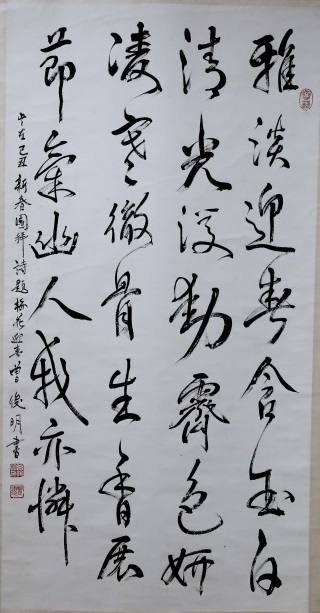 雅淡迎春含玉白
清光動霽色妍
凌寒徹骨生香展
節氣幽人我亦憐
在己丑新春國祥詩題梅花迎春曾俊明書